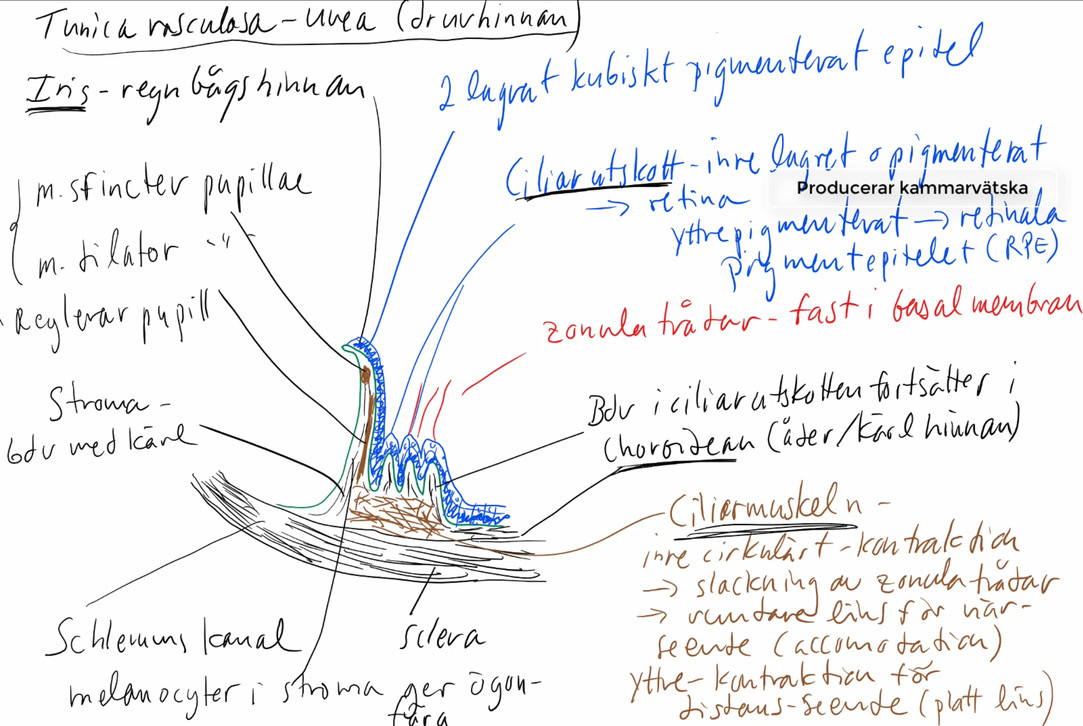 Tunica vasculosa - uvea (druvhinnan)
Iris - regnbågshinnan
2 lagrat kubiskt pigmenterat epitel
m. sfincter pupillae
m. dilator -"-
Reglerar pupill
Ciliarutskott - inre lagret o pigmenterat
Producerar kammarvätska
→ retina
yttre pigmenterat → retinala
pigmentepitelet (RPE)
zonulatrådar - fast i basalmembran
Stroma -
bdv med kärl
Bdv i ciliarutskotten fortsätter i
choroidean (åder/kärlhinnan)
Ciliarmuskeln -
inre cirkulärt - kontraktion
→ slackning av zonulatrådar
→ rundare lins för när-
seende (accomodation)
yttre - kontraktion för
distans-seende (platt lins)
Schlemms kanal
sclera
melanocyter i stroma ger ögon-
färg